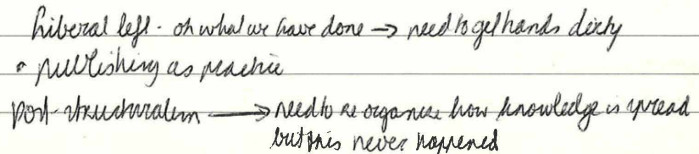 liberal left - oh what we have done → need to get hands dirty
• publishing as practice
post-structuralism → need to re organise how knowledge is spread
but this never happened